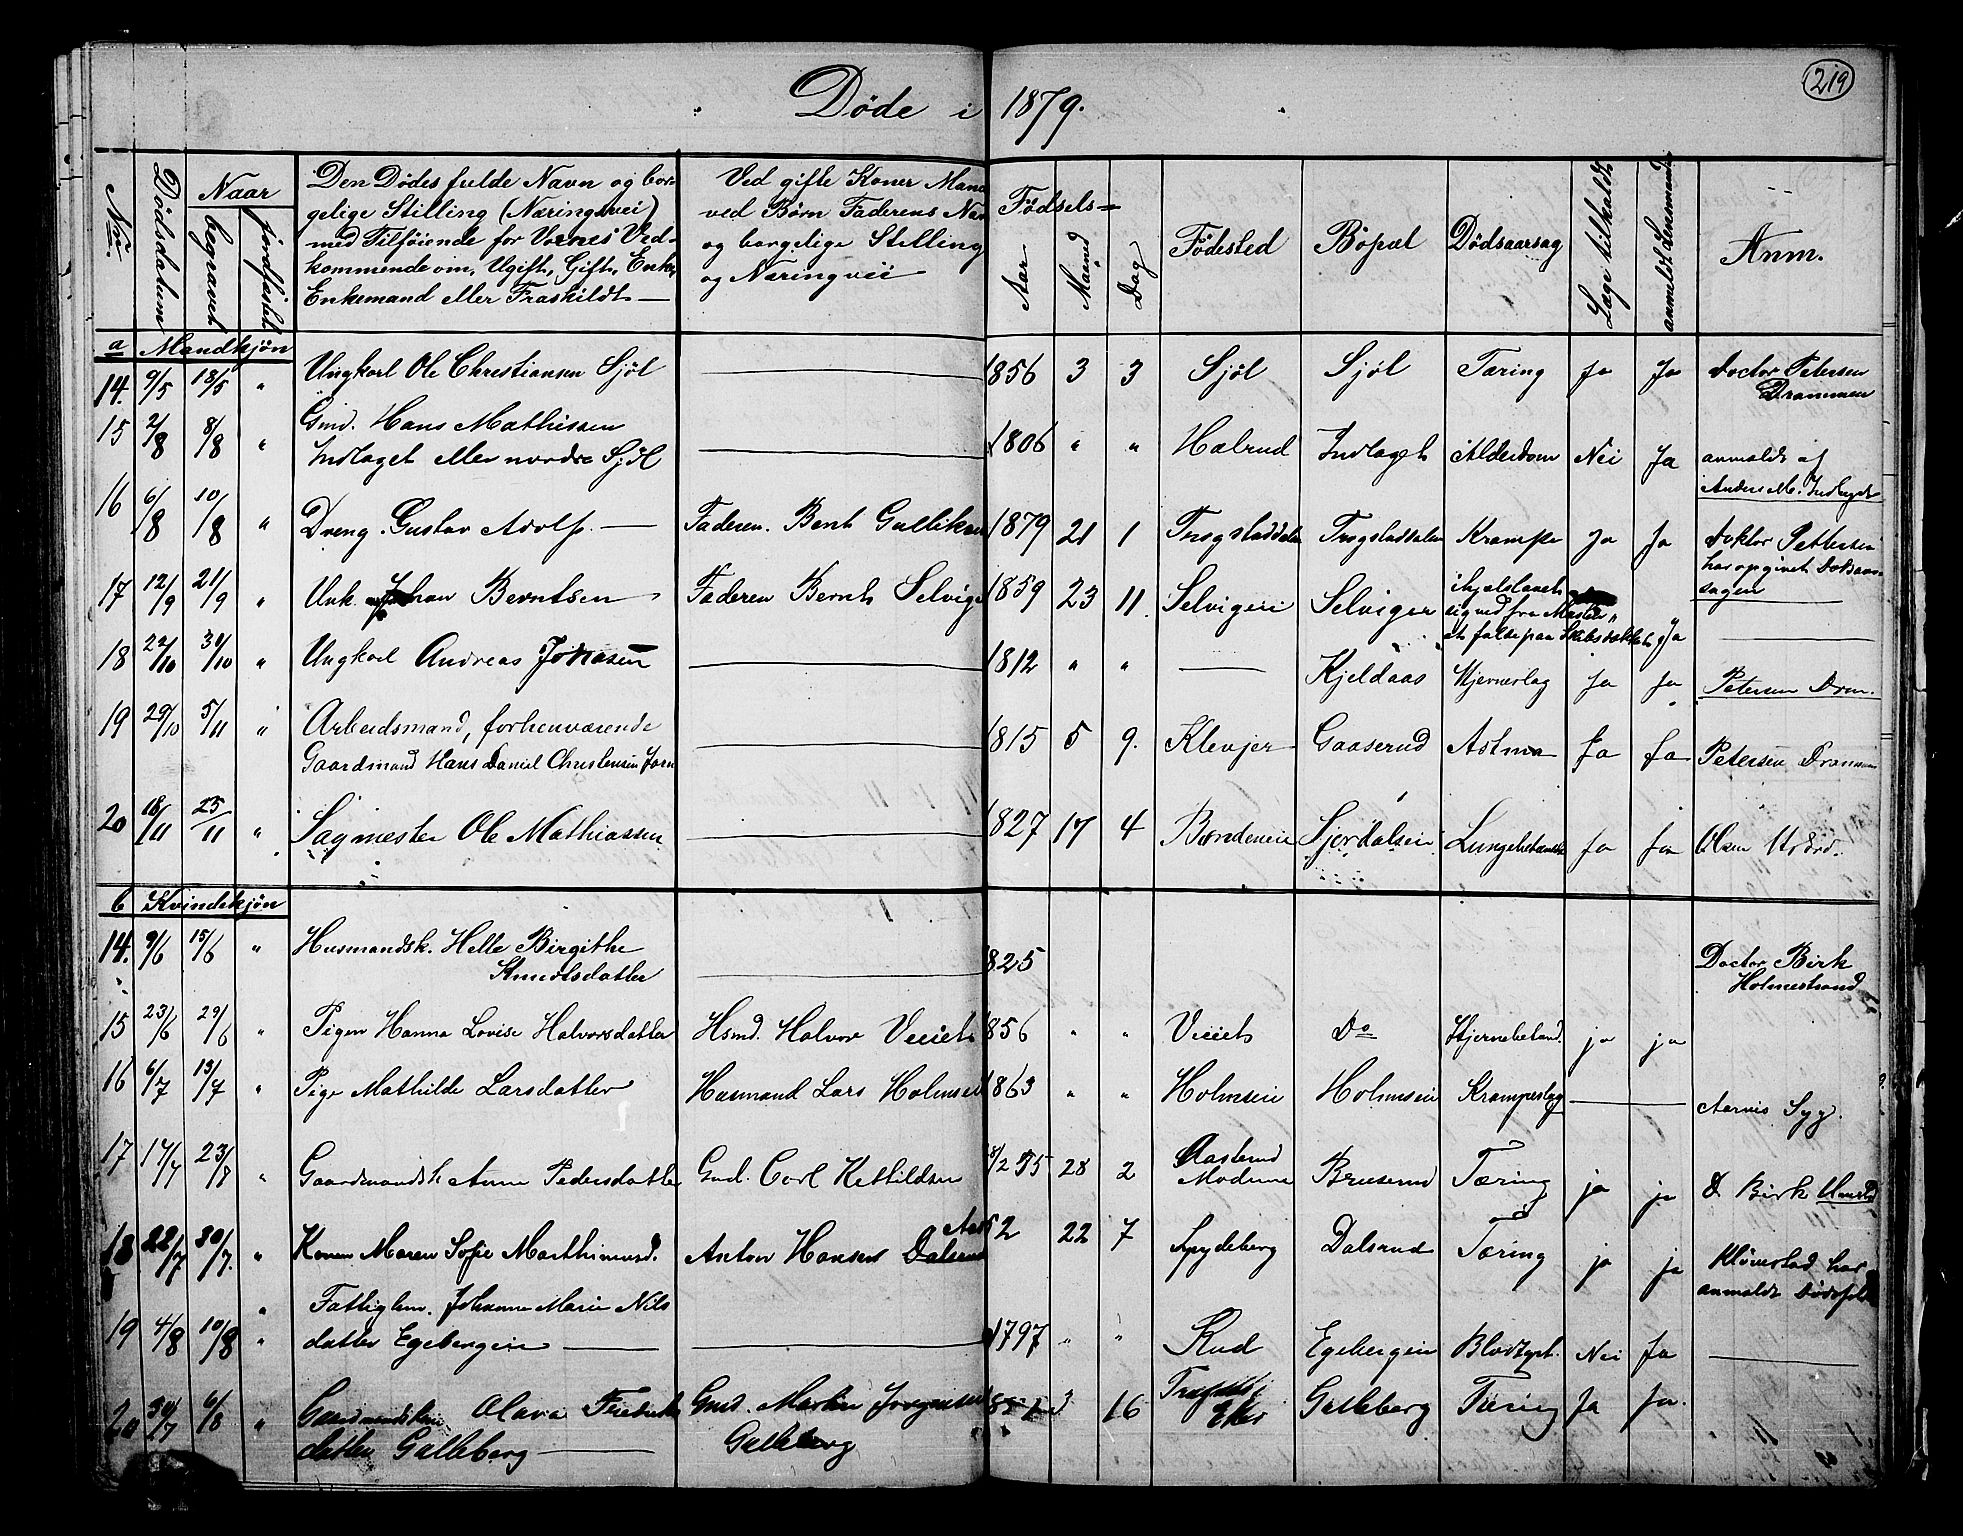 219
Døde i 1879.
Nr.
Dødsdatum
Naar
begravet
jordfæstet
Den Dødes fulde Navn og bor-
gelige Stilling (Næringsvei)
med Tilføiende for Voxnes Ved-
kommende om, Ugift, Gift, Enke,
Enkemand eller Fraskildt
Ved gifte Koner Mand
ved Børn Faderens Nav
og borgelige Stilling
og Næringveii
Fødsels=
Aar
Maand
Dag
Fødested
Bopæl
Dødsaarsag
Læge tilkaldt
anmeldt Lensmanden
Anm.
a Mandkjøn
14. 9/5 18/5 " Ungkarl Ole Christiansen Sjøl 1856 3 3 Sjøl Sjøl Tæring Ja Ja Doctor Petersen
Drammen
15 2/8 8/8 " Gmd. Hans Mathissen
Indlaget eller nordre Sjøl 1806 " " Halrud Indlaget Alderdom Nei Ja anmeldt af
Anders M. Indlaget
16 6/8 10/8 " Dreng Gustav Adolf. Faderen. Bent Gulliksen 1879 21 1 Krampe Ja Ja Doktor Pettersen
har opgivet Dødsaar-
sagen
17 12/9 21/9 " Unk. Johan Berntsen Faderen Bernt Selvige 1859 23 11. Selvigeii Selviger ihjelslaaet
sig ved fra Masten
at falde paa Skibsdækket Ja
18 22/10 30/10 " Ungkarl Andreas Johasen 1812 " " Kjeldaas Hjerneslag Ja Ja Petersen Dram.
19 29/10 5/11 " Arbeidsmand, forhenværende
Gaardmand Hans Daniel Christensen 1815 5 9. Klevjer Gaaserud Astma Ja Ja Petersen Drammen
20 18/11 25/11 " Sagmester Ole Mathiassen 1827 17 4 Lungebetændelse Ja Ja Olsen
b Kvindekjøn
14. 9/6 15/6 " Husmandsk. Helle Birgithe
Knudtsdatter 1825 Doctor Birk
Holmestrand
15 23/6 29/6 " Pigen Hanna Lovise Halvorsdatter Hsmd. Halvor Veiets 1856 " " Veiets Do Hjernebetænd. ja ja
16 6/7 13/7 " Pige Mathilde Larsdatter Husmand Lars Holmseie 1863 " " Holmseie Holmseie Krampeslag Syg.
17 17/7 23/8 " Gaardmandsk Anne Pedersdatter Gmd. Carl Kettildsen 28 2 Aaserud
Modum Bruserud Tæring ja ja D. Birk
18 22/7 30/7. " Konen Maren Sofie Marthinusd. Anton Hansen Dalsrud 52 22 7 Spydeberg Dalsrud Tæring ja ja Kløverstad har
anmeldt Dødsfald
19 4/8 10/8 " Fattiglem. Johanne Marie Nils
datter Egebergeie 1797 " " Rud Egebergeie Blodtyst. Nei Ja
20 30/7 6/8 " Gaardmandskone Olava Fredriks
datter Galleberg Gmd. Martin Jørgensen
Galleberg 16 Eker Galleberg Tæring Ja Ja.